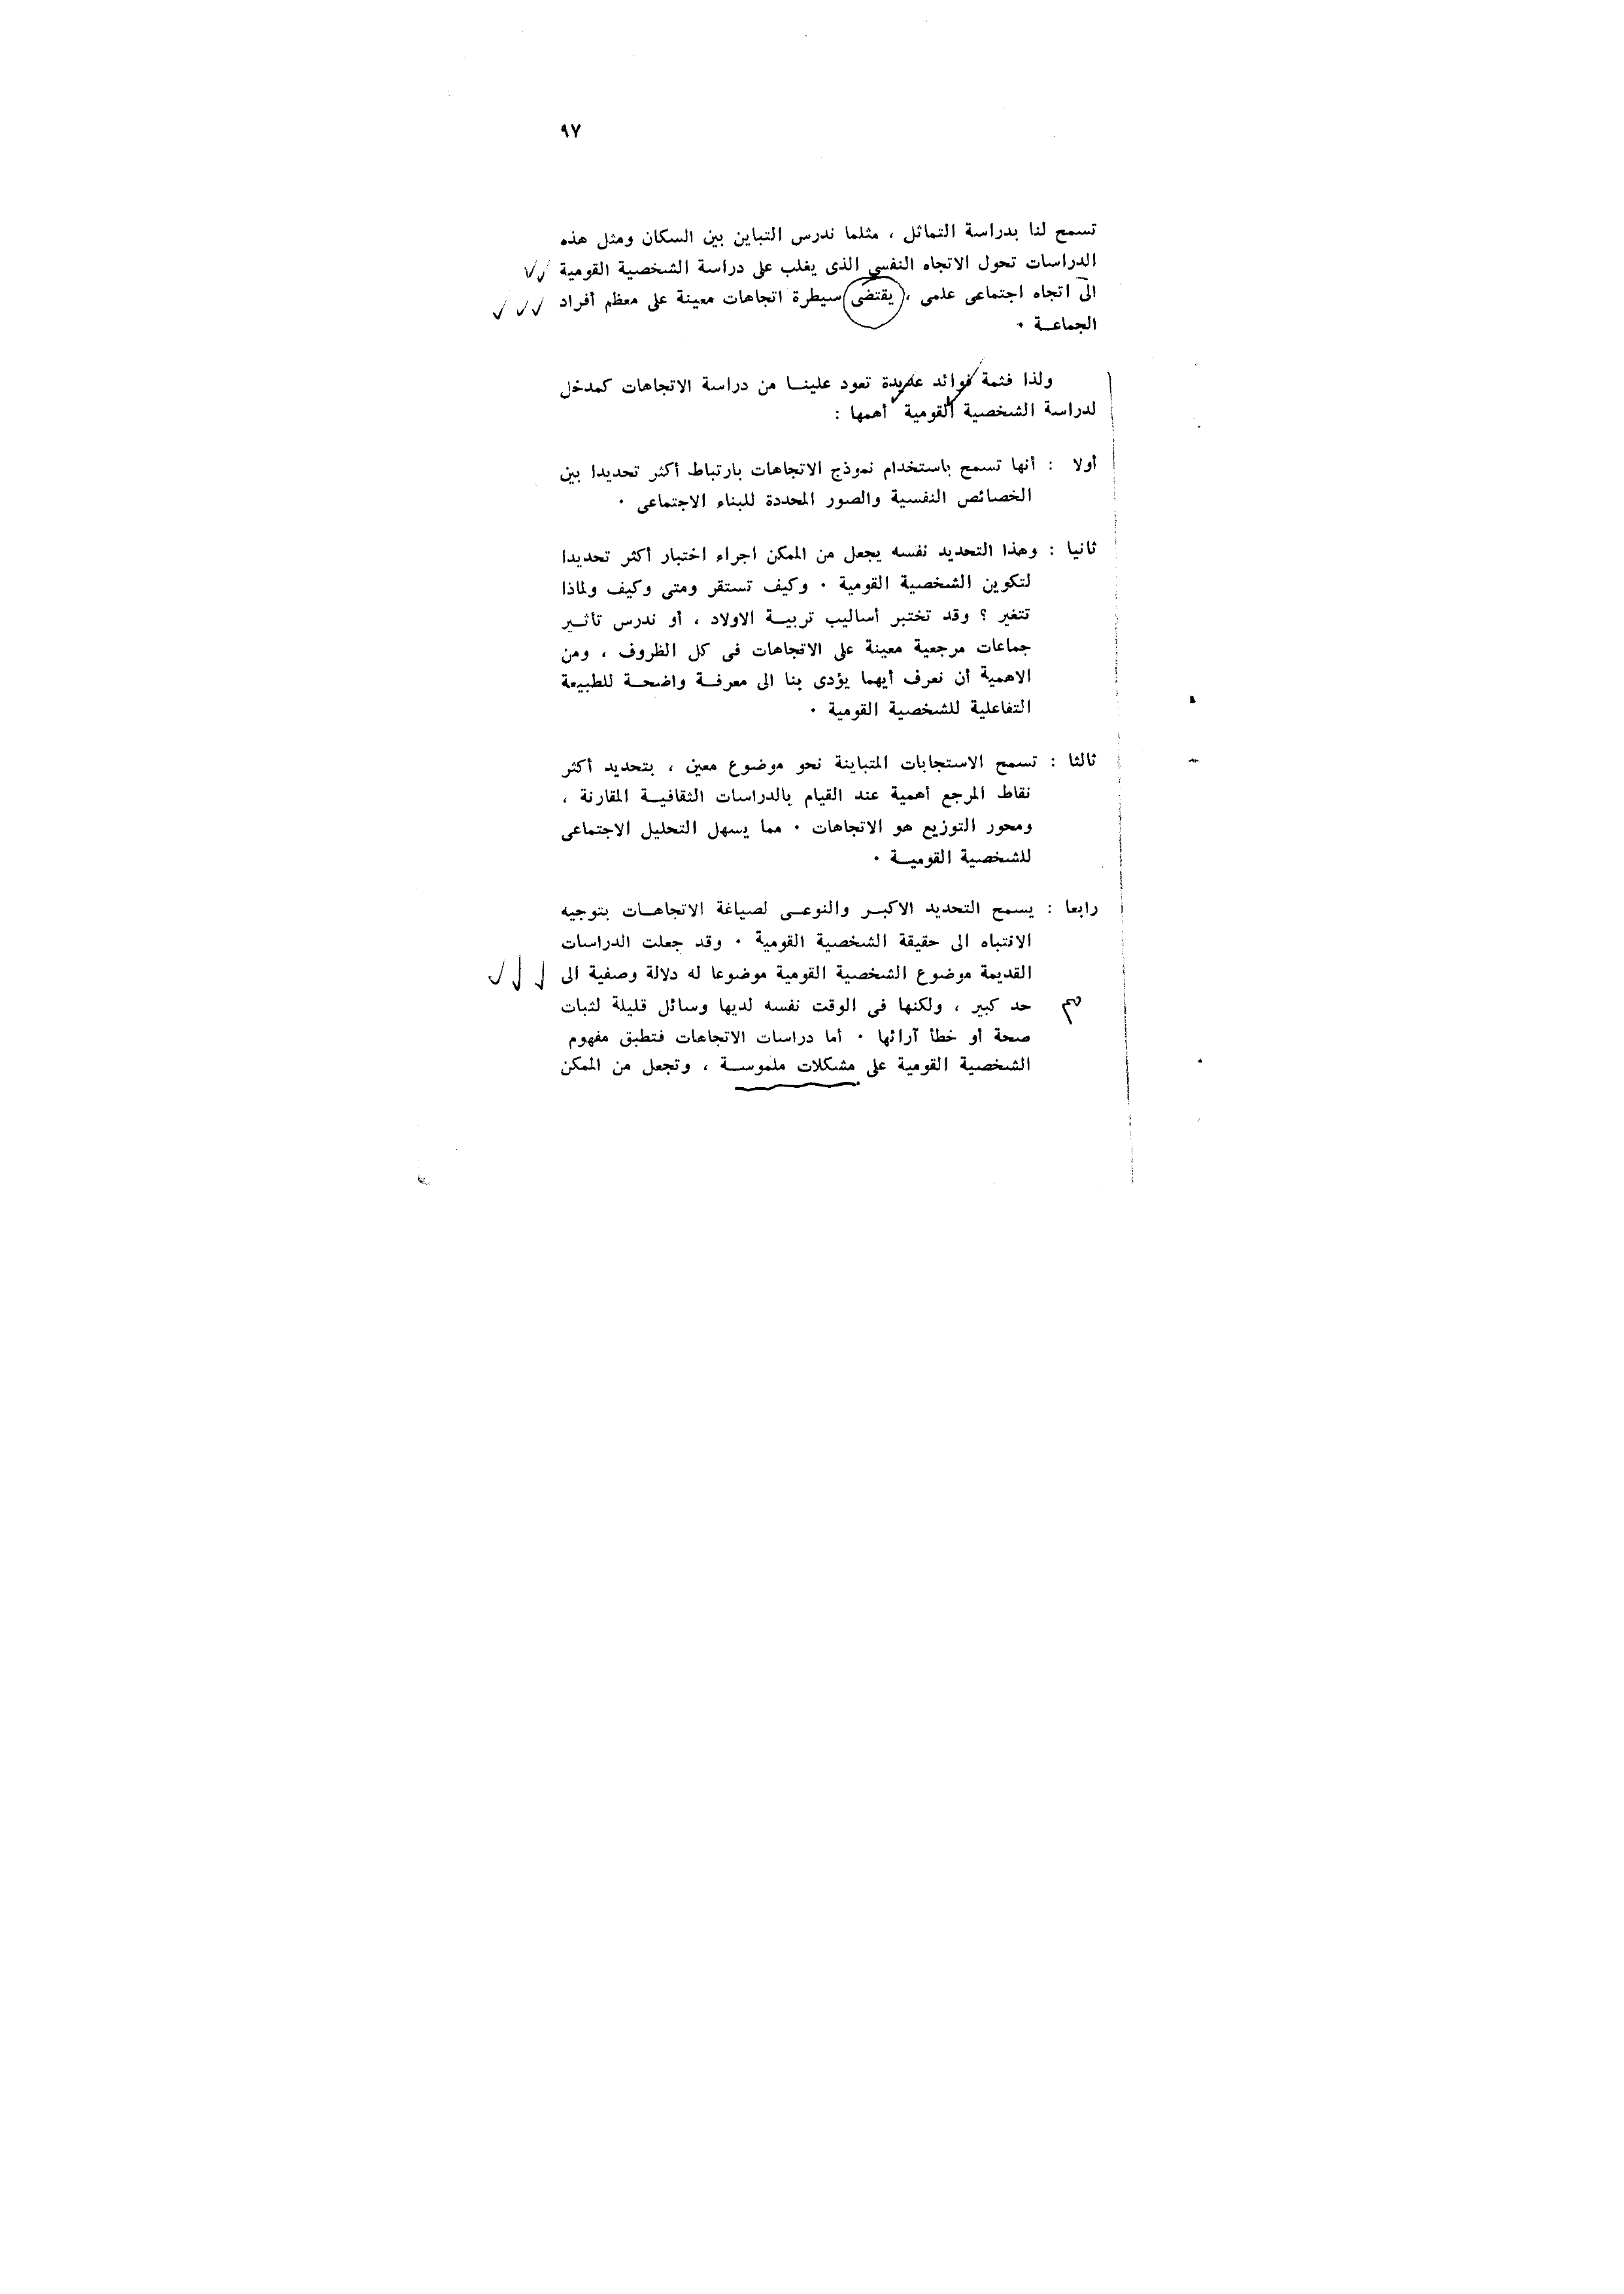 ٩٧
تسمح لنا بدراسة التماثل ، مثلما ندرس التباين بين السكان ومثل هذه
الدراسات تحول الاتجاه النفسى الذى يغلب على دراسة الشخصية القومية
الى اتجاه اجتماعى علمى ، يقتضى سيطرة اتجاهات معينة على معظم أفراد
الجماعــة ٠
ولذا فثمة فوائد عديدة تعود علينــا من دراسة الاتجاهات كمدخل
لدراسة الشخصية القومية أهمها :
أولا : أنها تسمح باستخدام نموذج الاتجاهات بارتباط أكثر تحديدا بين
الخصائص النفسية والصور المحددة للبناء الاجتماعى ٠
ثانيا : وهذا التحديد نفسه يجعل من الممكن اجراء اختبار أكثر تحديدا
لتكوين الشخصية القومية ٠ وكيف تستقر ومتى وكيف ولماذا
تتغير ؟ وقد تختبر أساليب تربيــة الاولاد ، أو ندرس تأثــير
جماعات مرجعية معينة على الاتجاهات فى كل الظروف ، ومن
الاهمية أن نعرف أيهما يؤدى بنا الى معرفــة واضحــة للطبيعة
التفاعلية للشخصية القومية ٠
ثالثا : تسمح الاستجابات المتباينة نحو موضوع معين ، بتحديد أكثر
نقاط المرجع أهمية عند القيام بالدراسات الثقافيــة المقارنة ،
ومحور التوزيع هو الاتجاهات ٠ مما يسهل التحليل الاجتماعى
للشخصية القوميــة ٠
رابعا : يسمح التحديد الاكبــر والنوعــى لصياغة الاتجاهــات بتوجيه
الانتباه الى حقيقة الشخصية القومية ٠ وقد جعلت الدراسات
القديمة موضوع الشخصية القومية موضوعا له دلالة وصفية الى
حد كبير ، ولكنها فى الوقت نفسه لديها وسائل قليلة لثبات
صحة أو خطأ آرائها ٠ أما دراسات الاتجاهات فتطبق مفهوم
الشخصية القومية على مشكلات ملموســة ، وتجعل من الممكن